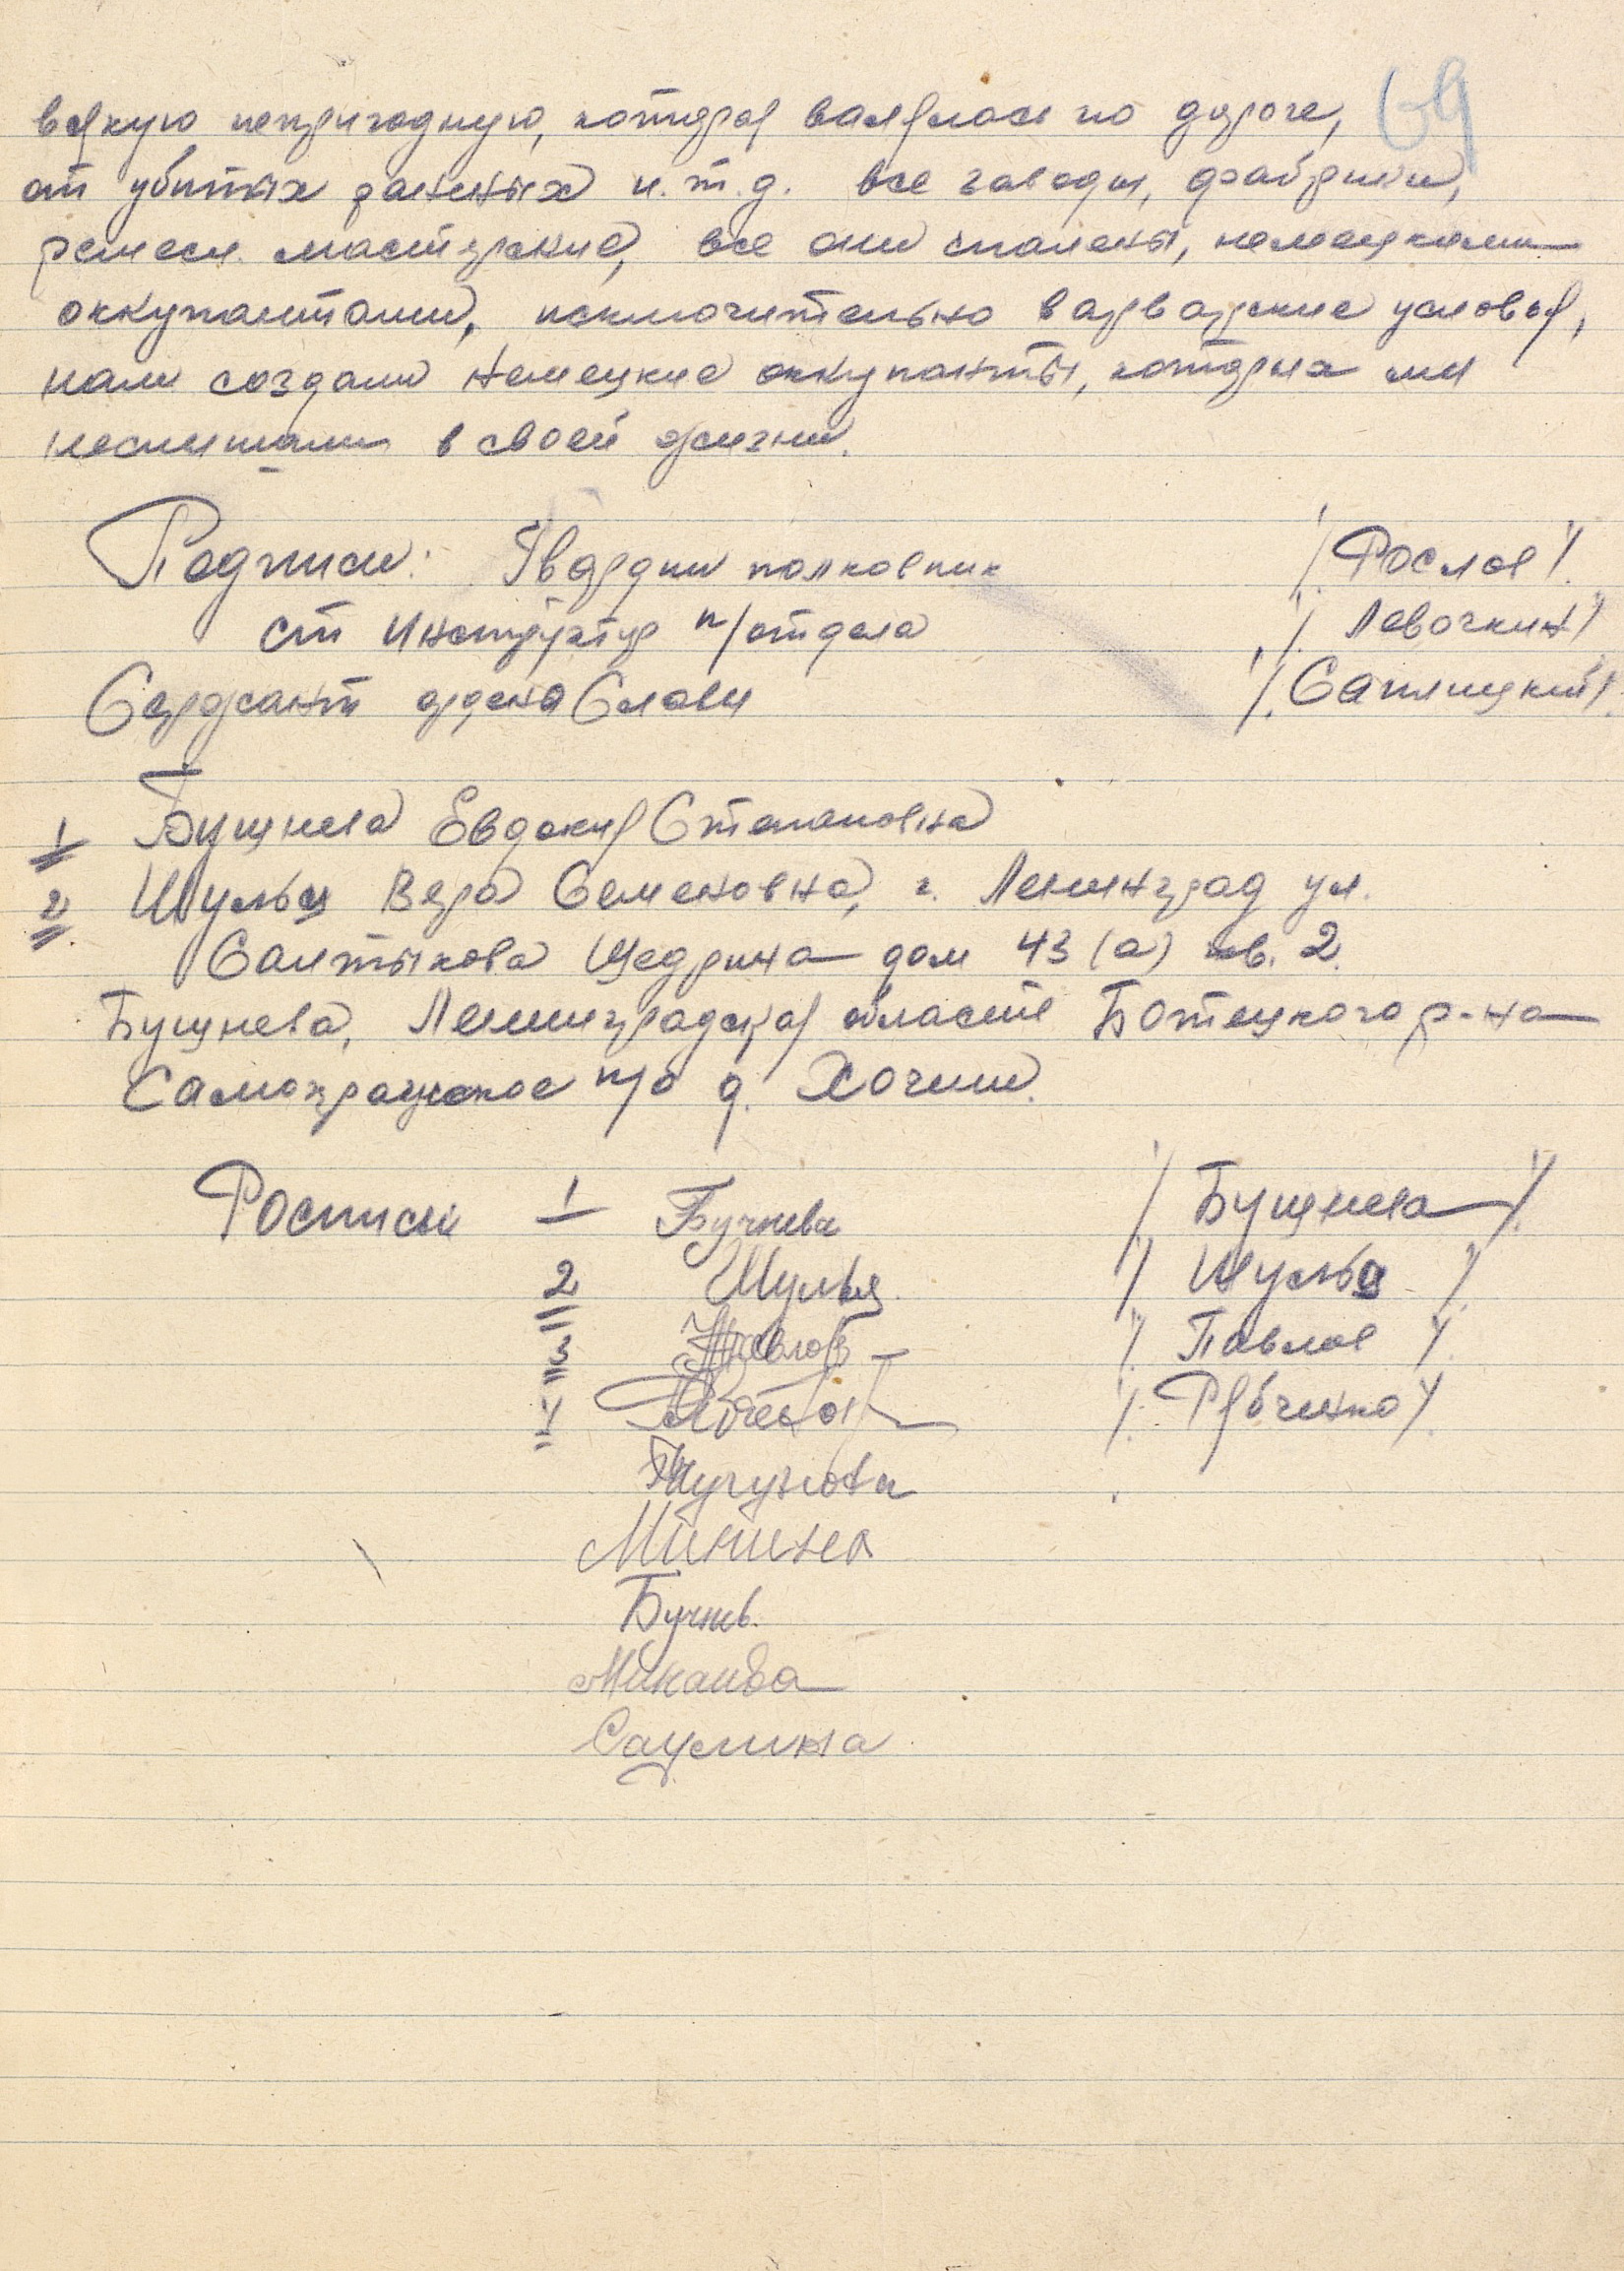 69
всякую непригодную, которая валялась по дороге,
от убитых раненых и.т.д. все заводы, файрики,
ремесл. мастерские, все они спалены, немецкими
оккупантами, исключительно варварские условья,
нам создали немецкие оккупанты, которых мы
неслыхали в своей жизни.
Подписи: Гвардии полковник /Рослов/.
Ст Инструктор п/отдела / Левочкин/
Сержант ордена Славы /.Саплицкий/.
1 Бушнева Евдокия Степановна
2 Шульц Вера Семеновна, г. Ленинград ул.
Салтыкова Щедрина дом 43 (а) кв. 2.
Бушнева, Ленинградская область Ботецкого р-на
Самокражское п/о д. Хочини.
Росписи 1 Бучнева / Бушнева /.
2 Шульц / Шульц /.
3 Павлов /. Павлов /.
4 /. Рябченко /.
Минина
Бучнв.
Саулина